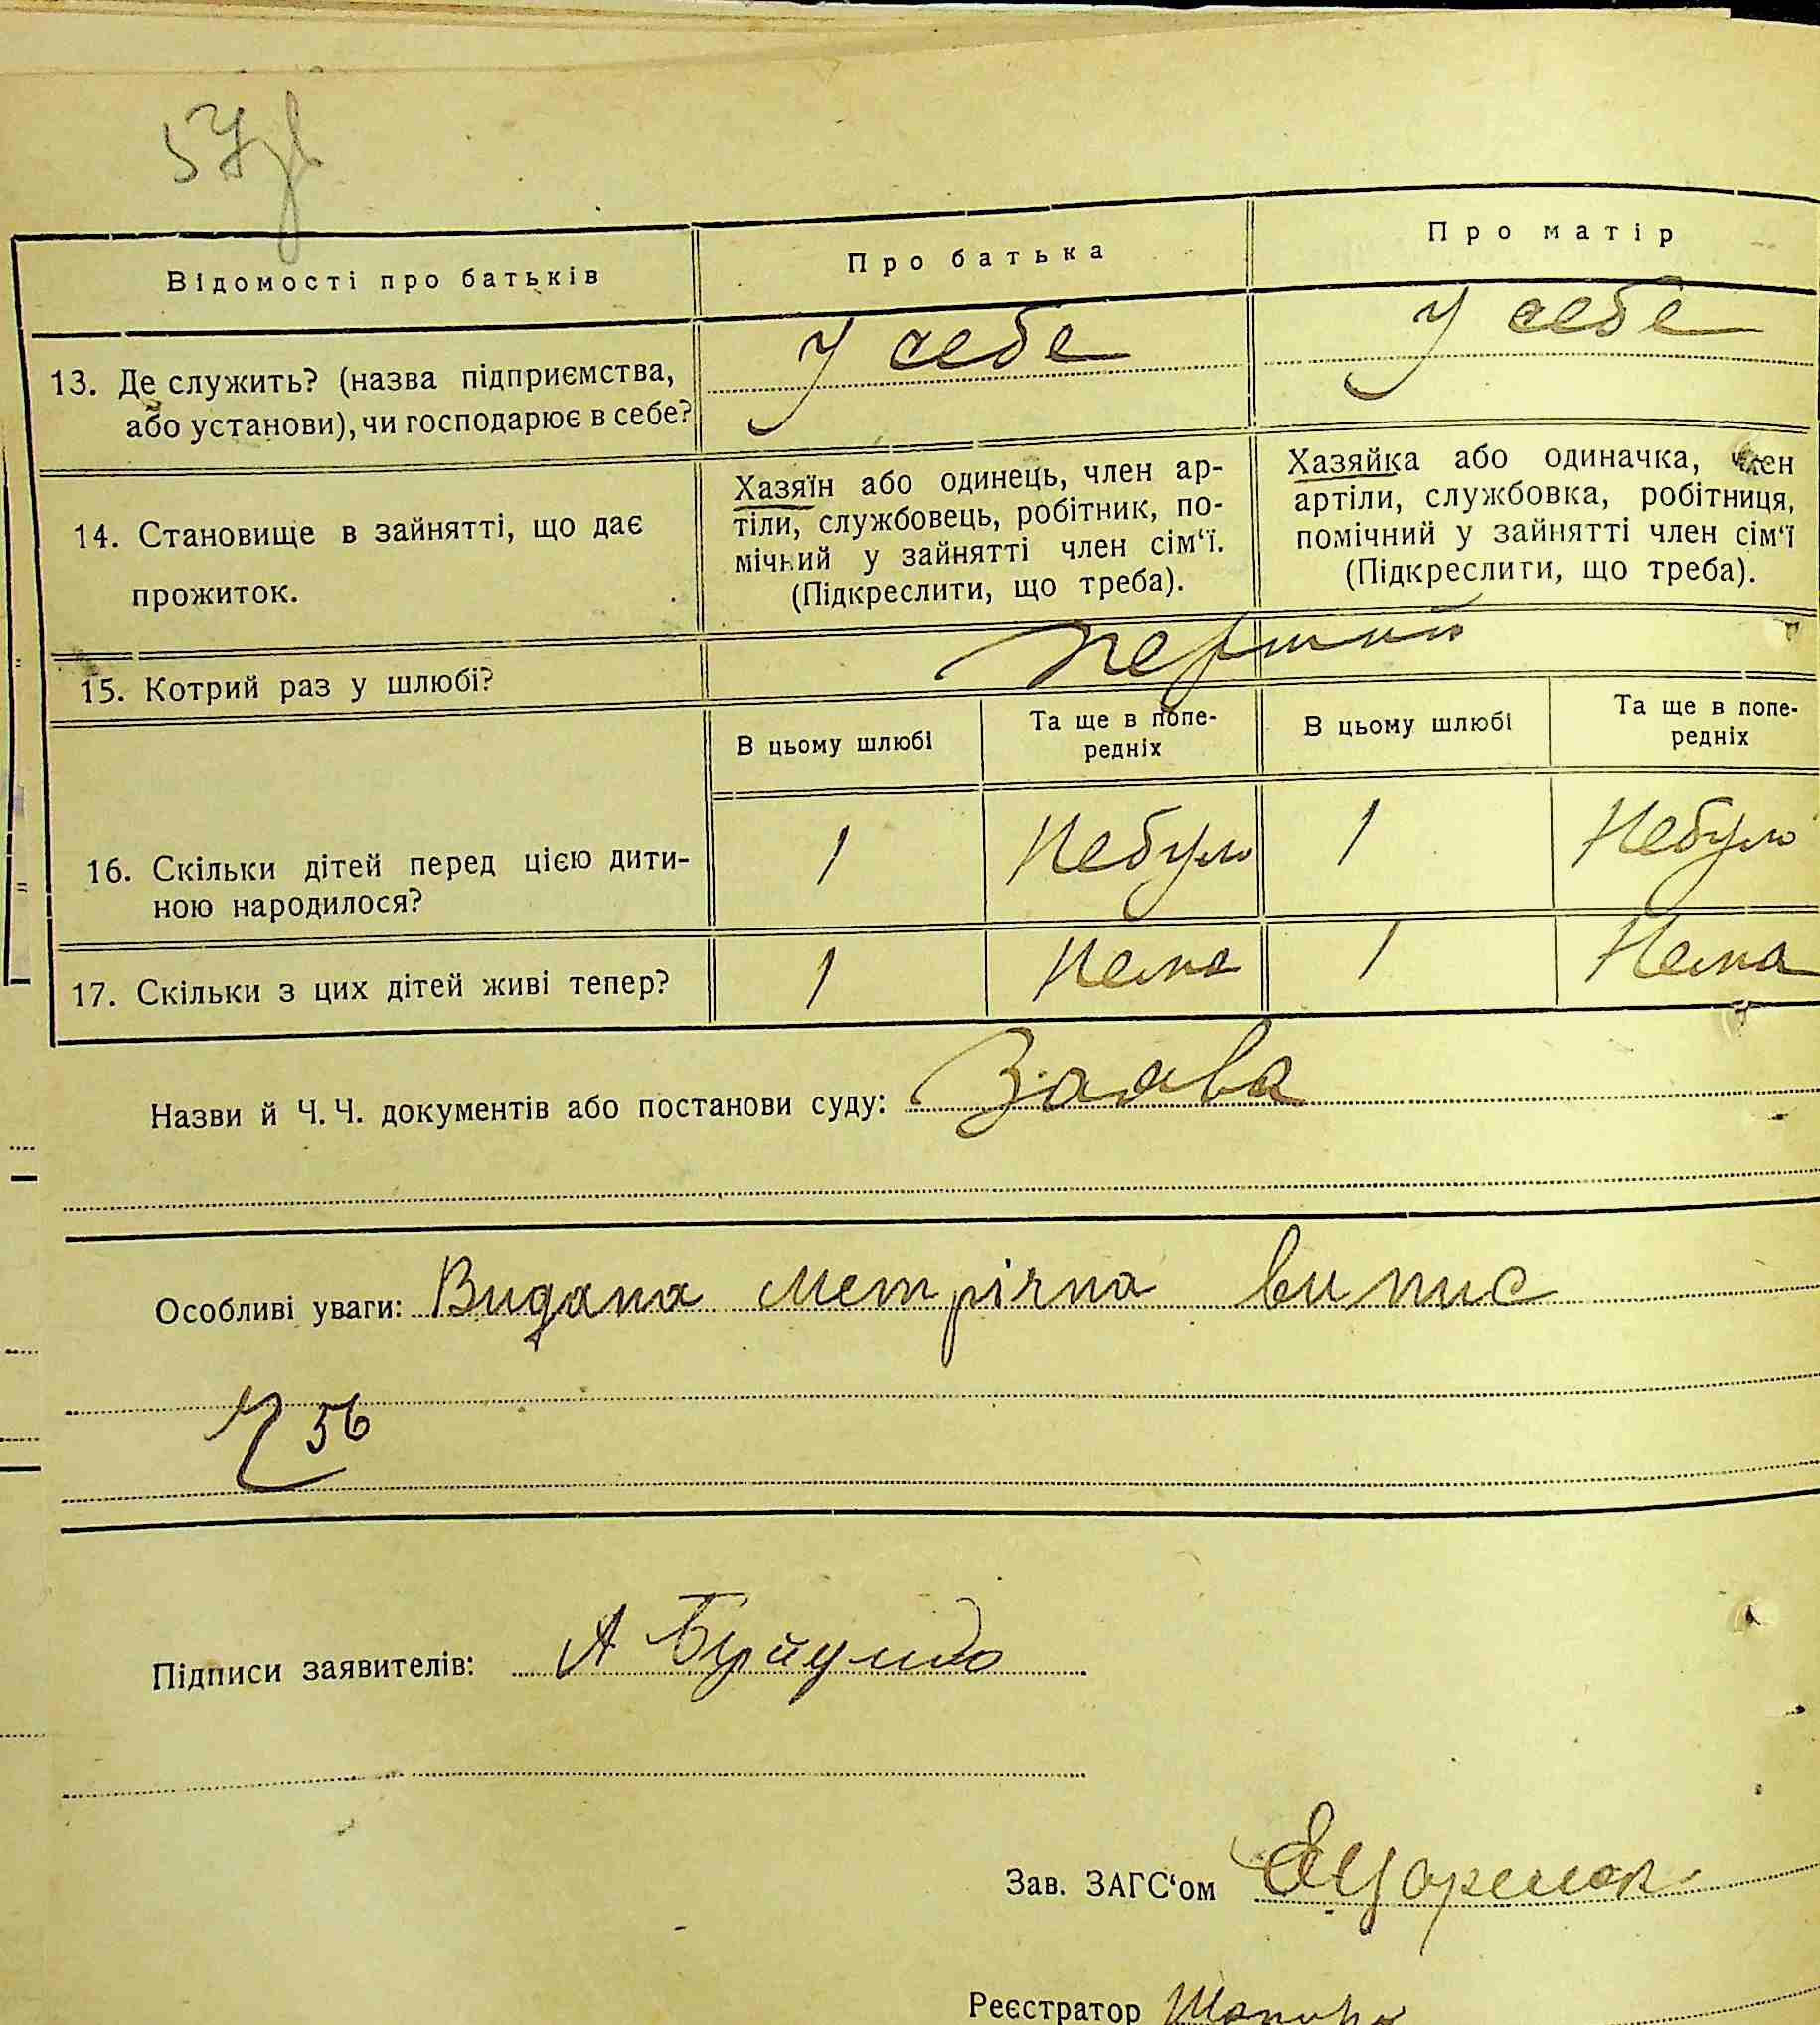 57зв
Відомості про батьків
Про батька
Про матір
13. Де служить? (назва підприємства,
або установи), чи господарює в себе?
у себе
у себе
14. Становище в зайнятті, що дає
прожиток.
Хазяїн або одинець, член ар-
тіли, службовець, робітник, по-
мічний у зайнятті член сім‘ї.
(Підкреслити, що треба).
Хазяйка або одиначка, член
артіли, службовка, робітниця,
помічний у зайнятті член сім‘ї
(Підкреслити, що треба).
15. Котрий раз у шлюбі?
первий
В цьому шлюбі
Та ще в попе-
редніх
В цьому шлюбі
Та ще в попе-
редніх
16. Скільки дітей перед цією дити-
ною народилося?
1 Небуло 1 Небуло
17. Скільки з цих дітей живі тепер?
1 Нема 1 Нема
Назви й Ч. Ч. документів або постанови суду: Заява
Особливі уваги: Видана метрічна випис
Ч 56
Підписи заявителів: А
Зав. ЗАГС‘ом
Реєстратор